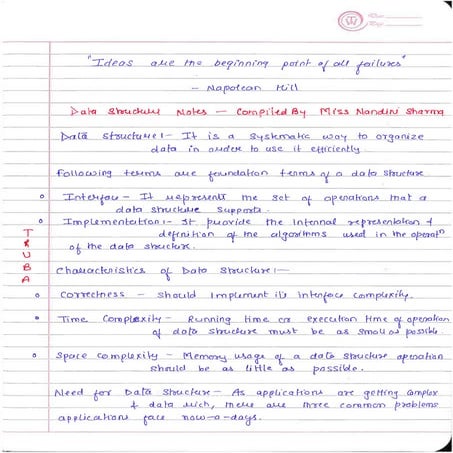 Date
Page
"Ideas are the beginning point of all failures"
- Napolean Hill
Data Structure Notes - Compiled By Miss Nandini Sharma
Data Structure:- It is a systematic way to organize
data in order to use it efficiently.
Following terms are foundation terms of a data structure
Interface - It represent the set of operations that a
data structure supports.
Implementation:- It provide the internal representation &
definition of the algorithms used in the operatn
of the data structure.
TRUBA
Characteristics of Data Structure:-
Correctness - Should implement its interface complexity.
Time Complexity - Running time or execution time of operation
of data structure must be as small as possible.
Space Complexity - Memory usage of a data structure operation
should be as little as possible.
Need for Data Structure - As applications are getting complex
& data rich, there are three common problems
applications face now-a-days.